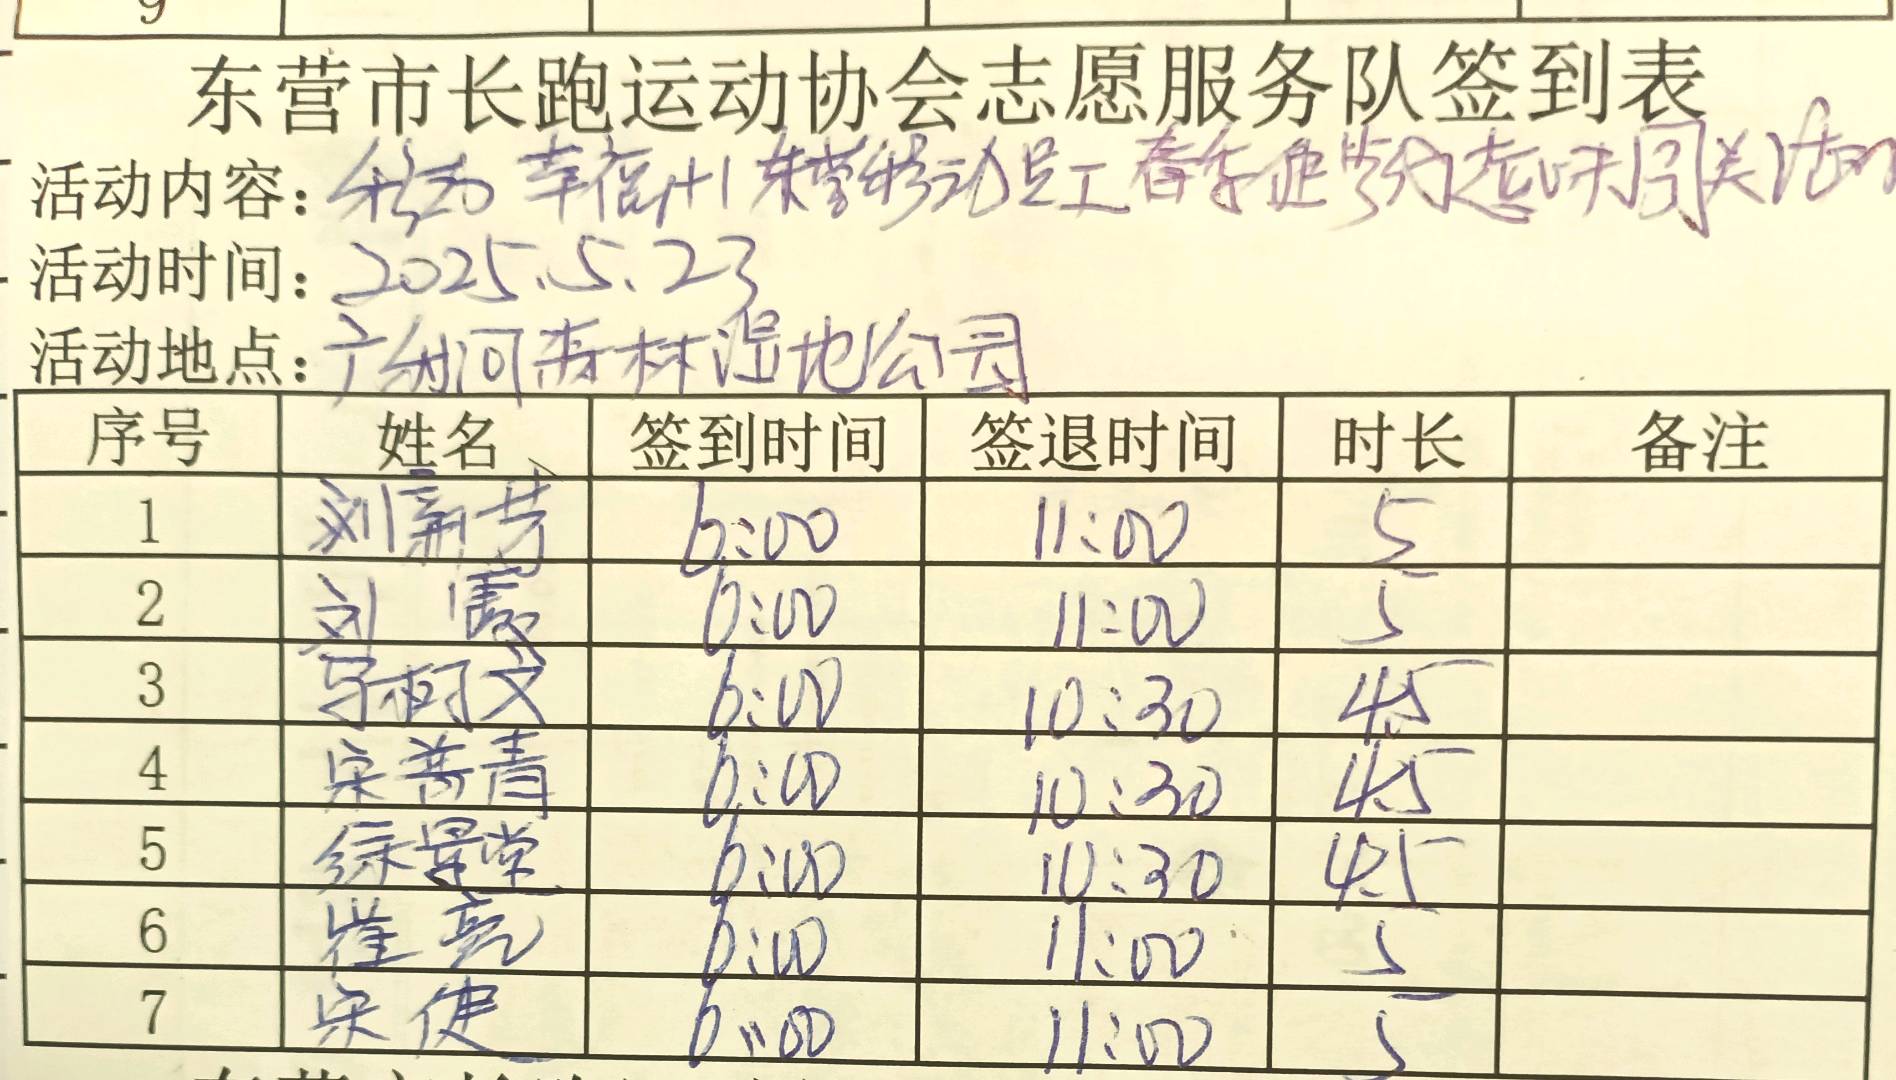 9
东营市长跑运动协会志愿服务队签到表
活动内容：移动幸福1+1东营移动员工春季健步行趣味闯关活动
活动时间：2025.5.23
活动地点：广利河森林湿地公园
序号 姓名 签到时间 签退时间 时长 备注
1 刘新芳 6:00 11:00 5
2 刘霞 6:00 11:00 5
3 马树文 6:00 10:30 4.5
4 宋普青 6:00 10:30 4.5
5 徐景堂 6:00 10:30 4.5
6 崔亮 6:00 11:00 5
7 宋健 6:00 11:00 5